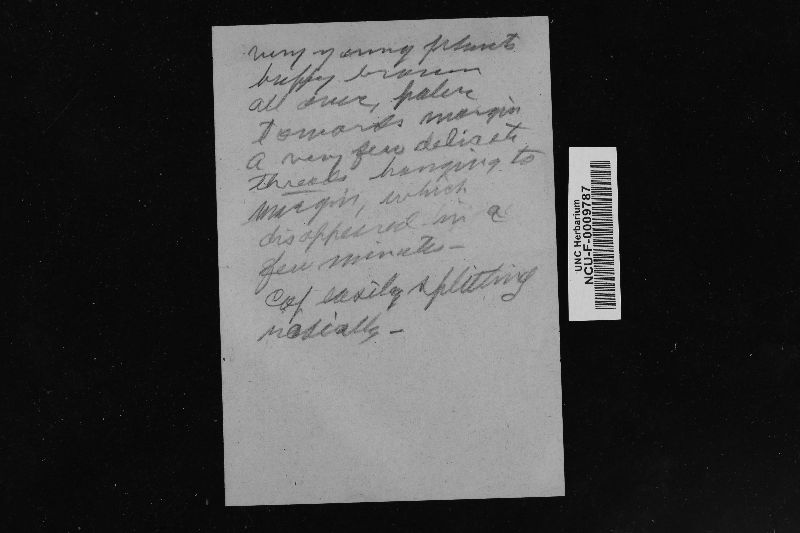 very young plants
buffy brown
all over, paler
towards margin
A very few delicate
threads hanging to
margin, which
disappeared in a
few minutes –
Cap easily splitting
radially –
UNC Herbarium
NCU-F-0009787